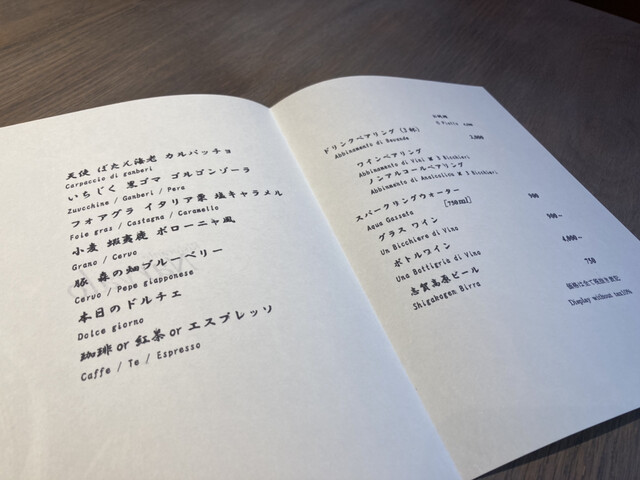 天使 ぼたん海老 カルパッチョ
Carpaccio di gamberi
いちじく 黒ゴマ ゴルゴンゾーラ
Zuvcchine / Ganberi / Pera
フォアグラ イタリア栗 塩キャラメル
Foie graz / Castagna / Caramello
小麦 蝦夷鹿 ボローニャ風
Grano / Cervo
豚 森の畑ブルーベリー
Cervo / Pepe giapponese
本日のドルチェ
Dolce giorno
珈琲 or 紅茶 or エスプレッソ
Caffe / Te / Espresso
ドリンクペアリング (3杯) 3,000
Abbinamento di Bevande
ワインペアリング
Abbinamento di Vini M 3 Bicchieri
ノンアルコールペアリング
Abbinamento di Analcolico M 3 Bicchieri
スパークリングウォーター
Aqua Gassata [750ml] 900
グラス ワイン 900~
Un Bicchiere di Vino
ボトルワイン 4,000~
Una Bottigria di Vino
志賀高原ビール 750
Shigakogen Birra
価格は全て税抜き表記
Display without tax10%